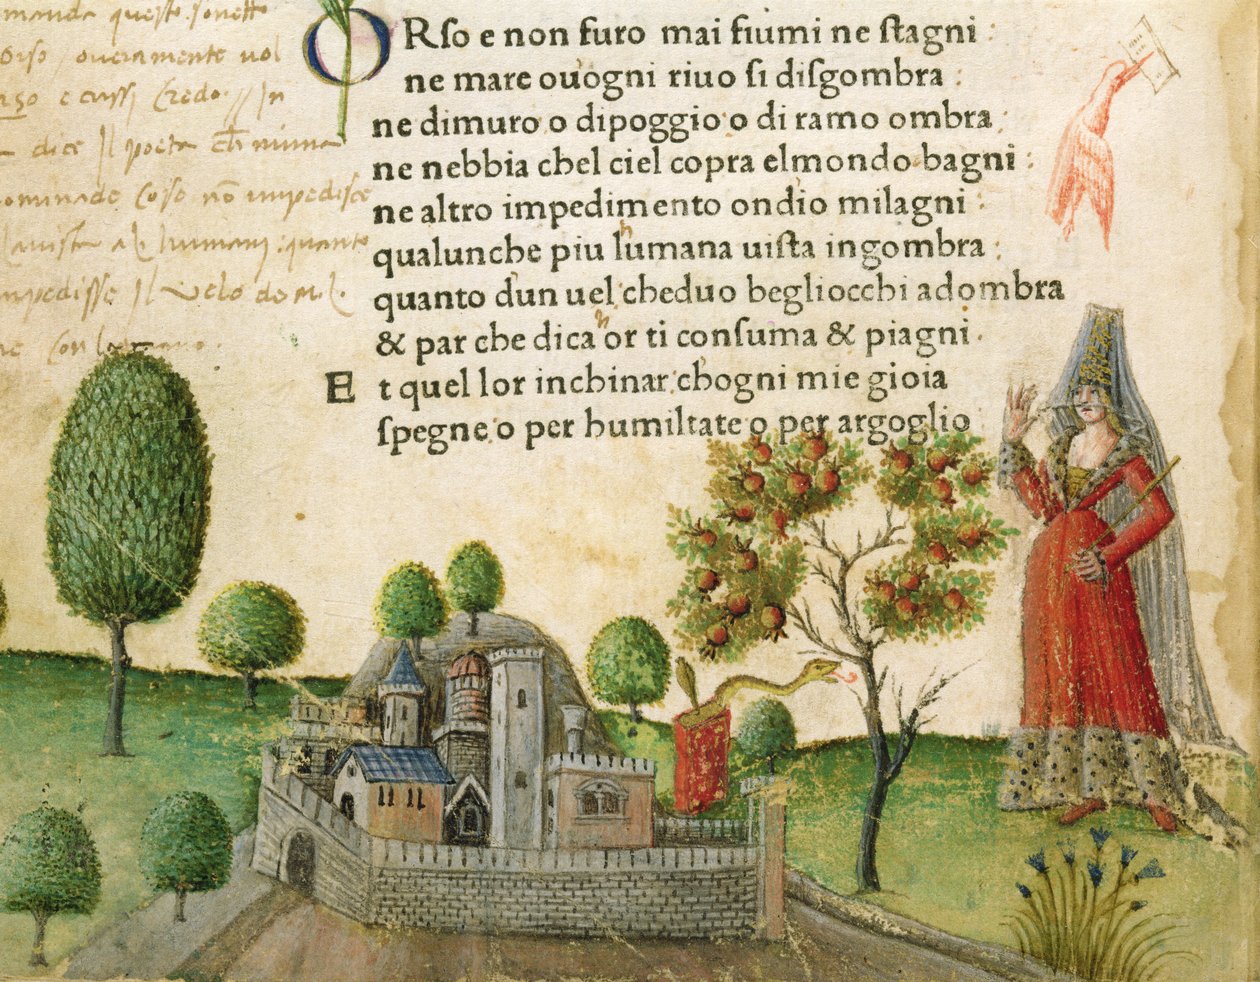 manda questo sonetto
orso oueramente uol
e cussi Credo. In
dice Il poeta ch niuna
nominade Cose nō impedisce
quanto
impedisse Il Velo de M. L.
ORſo e non furo mai fiumi ne ſtagni :
ne mare ou'ogni riuo ſi diſgombra :
ne dimuro o dipoggio o di ramo ombra :
ne nebbia chel ciel copra elmondo bagni :
ne altro impedimento ondio milagni :
qualunche piu humana uiſta ingombra :
quanto d'un uel cheduo begliocchi adombra
& par che dica hor ti conſuma & piagni.
Et quel lor inchinar ch'ogni mie gioia
ſpegne o per humiltate o per argoglio